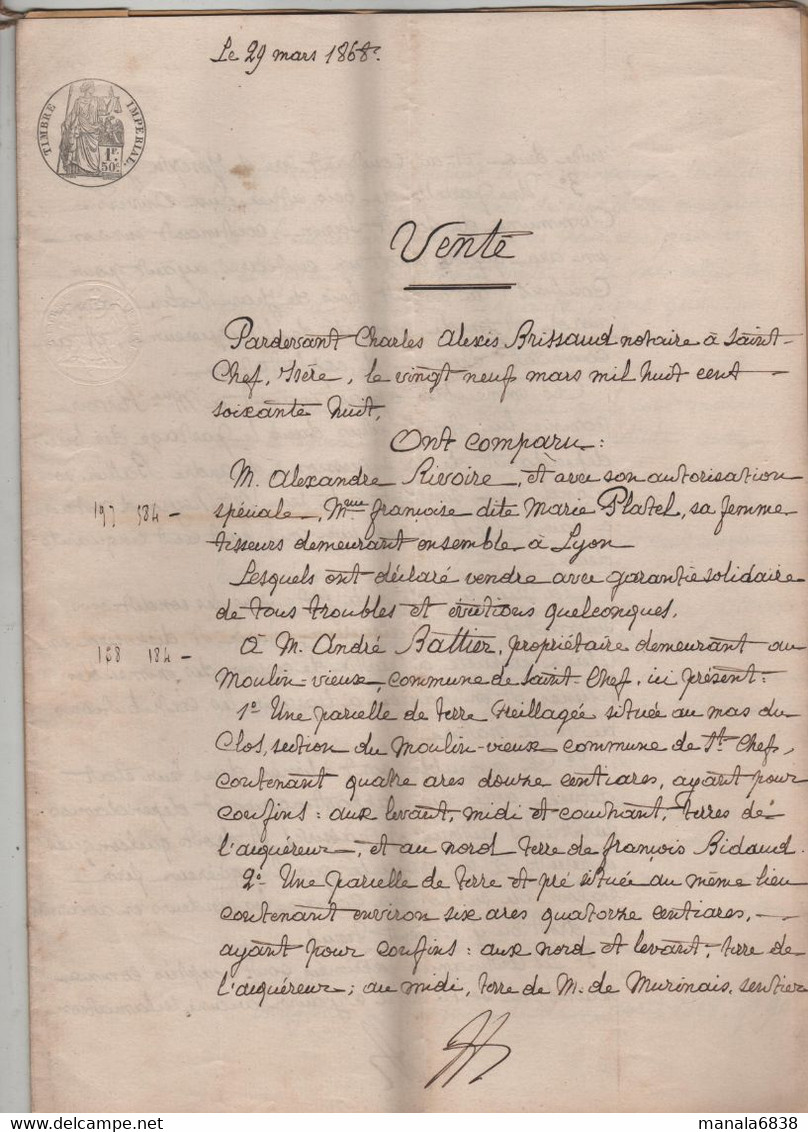 Le 29 mars 1868.
TIMBRE IMPERIAL
1F.
50c.
Vente
Pardevant Charles Alexis Brissaud notaire à Saint-
Chef, Isère, le vingt neuf mars mil huit cent
soixante huit,
Ont comparu :
M. Alexandre Rivoire, et avec son autorisation
197 584 - spéciale, Mme françoise dite Marie Platel, sa femme
tisseurs demeurant ensemble à Lyon
Lesquels ont déclaré vendre avec garantie solidaire
de tous troubles et évictions quelconques,
168 184 - à M. André Battier, propriétaire demeurant au
Moulin-vieux, commune de Saint-Chef, ici présent :
1º Une parcelle de terre treillagée située au mas du
Clos, section du Moulin-vieux commune de St. Chef,
contenant quatre ares douze centiares, ayant pour
confins : aux levant, midi et couchant, terres de
l'acquéreur, et au nord terre de françois Bidaud.
2º Une parcelle de terre et pré située au même lieu
contenant environ six ares quatorze centiares, —
ayant pour confins : aux nord et levant, terre de
l'acquéreur ; au midi, terre de M. de Murinais, sentier
www.delcampe.net
manala6838